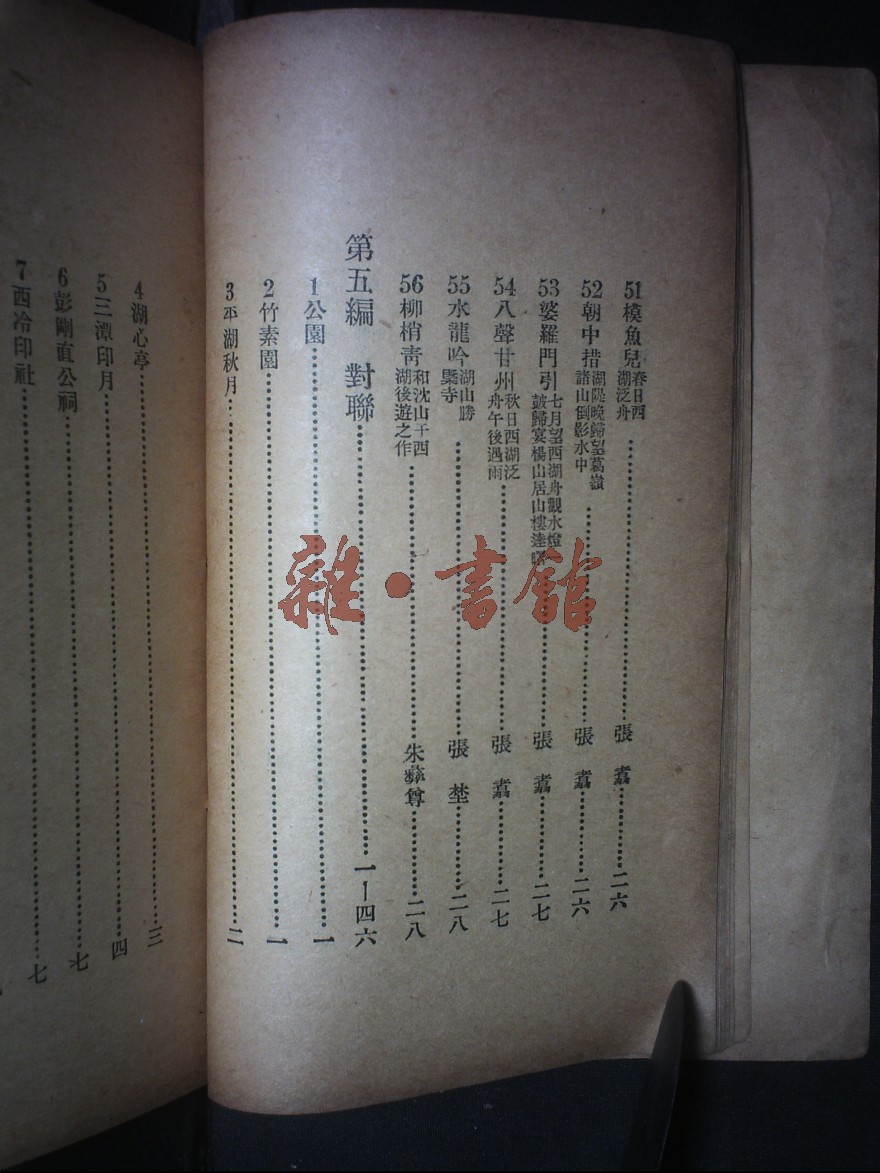 51摸魚兒 春日西湖泛舟……張翥……二六
52朝中措 湖隄晚歸望葛嶺諸山倒影水中……張翥……二六
53婆羅門引 七月望西湖舟觀水燈皷歸宴楊山居山樓逹曙……張翥……二七
54八聲甘州 秋日西湖泛舟午後遇雨……張翥……二七
55水龍吟 湖山勝槩寺……張埜……二八
56柳梢靑 和沈山子西湖後遊之作……朱彝尊……二八
第五編 對聯……一—四六
1公園……一
2竹素園……一
3平湖秋月……二
4湖心亭……三
5三潭印月……四
6彭剛直公祠……七
7西冷印社……七
雜·書館